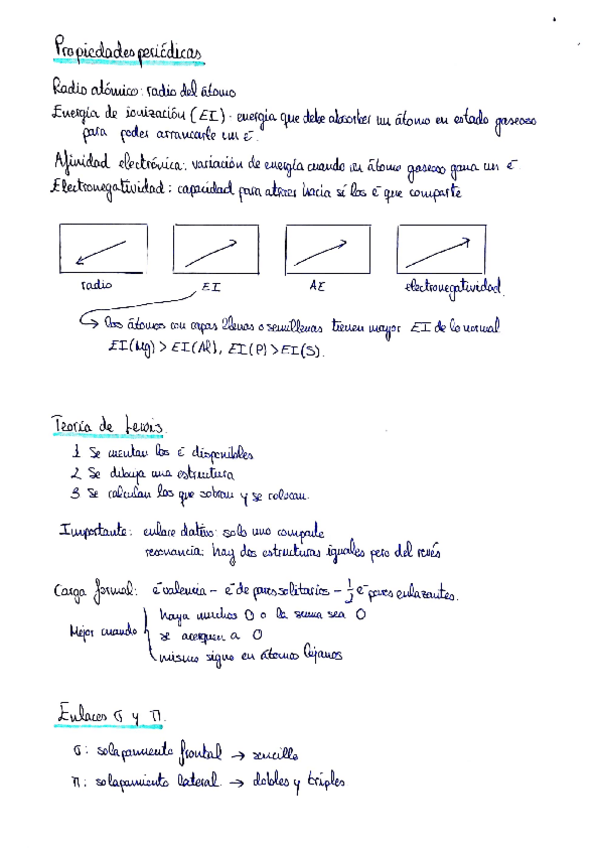 Propiedades periódicas
Radio atómico: radio del átomo
Energía de ionización (EI): energía que debe absorber un átomo en estado gaseoso
para poder arrancarle un e⁻.
Afinidad electrónica: variación de energía cuando un átomo gaseoso gana un e⁻.
Electronegatividad: capacidad para atraer hacia sí los e⁻ que comparte
radio EI AE electronegatividad.
átomos con capas llenas o semillenas tienen mayor EI de lo normal
EI(Mg) > EI(Al), EI(P) > EI(S).
Teoría de Lewis.
1 Se cuentan los e⁻ disponibles
2 Se dibuja una estructura
3 Se calculan los que sobran y se colocan.
Importante: enlace dativo: solo uno comparte
resonancia: hay dos estructuras iguales pero del revés
Carga formal: e⁻valencia - e⁻ de pares solitarios - 1/2 e⁻ pares enlazantes.
Mejor cuando
haya muchos 0 o la suma sea 0
se acerquen a 0
mismo signo en átomos lejanos
Enlaces σ y π.
σ: solapamiento frontal → sencillo
π: solapamiento lateral → dobles y triples